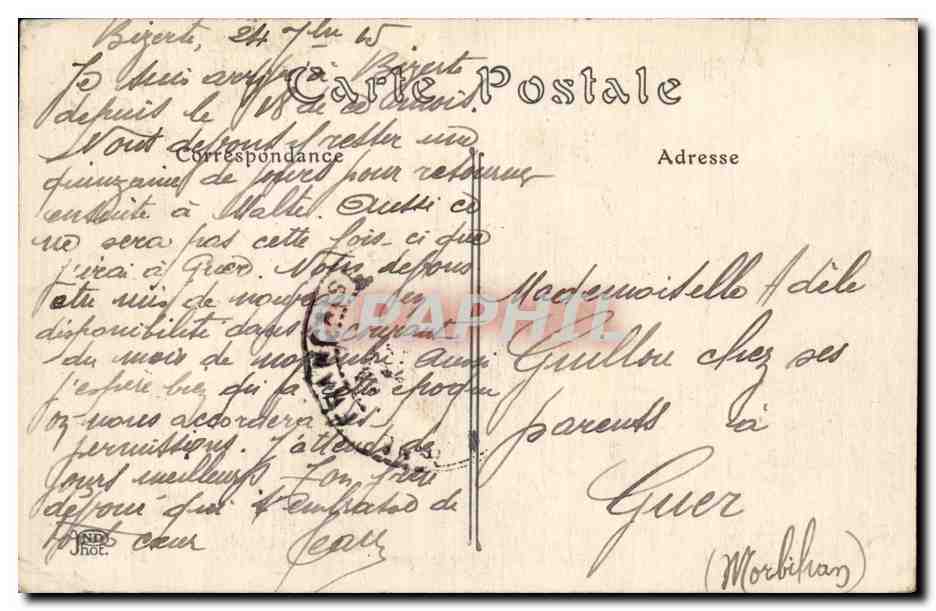 Bizerte, 24 7bre 15
Carte Postale
Je suis arrivé à Bizerte
depuis le 18 de ce mois.
Nous devons rester une
Correspondance
Adresse
quinzaine de jours pour retourner
ensuite à Malte. Aussi ce
ne sera pas cette fois-ci que
j'irai à Guer. Nous devons
être mis de nouveau en
disponibilité dans le courant
du mois de novembre. Aussi
j'espère bien qu'à cette époque
on nous accordera des
permissions. J'attends de
jours meilleurs. Ton frère
dévoué qui t'embrasse de
tout cœur
Jean
ND
Phot.
Mademoiselle Adèle
Guillou chez ses
parents à
Guer
(Morbihan)
CPAPHIL